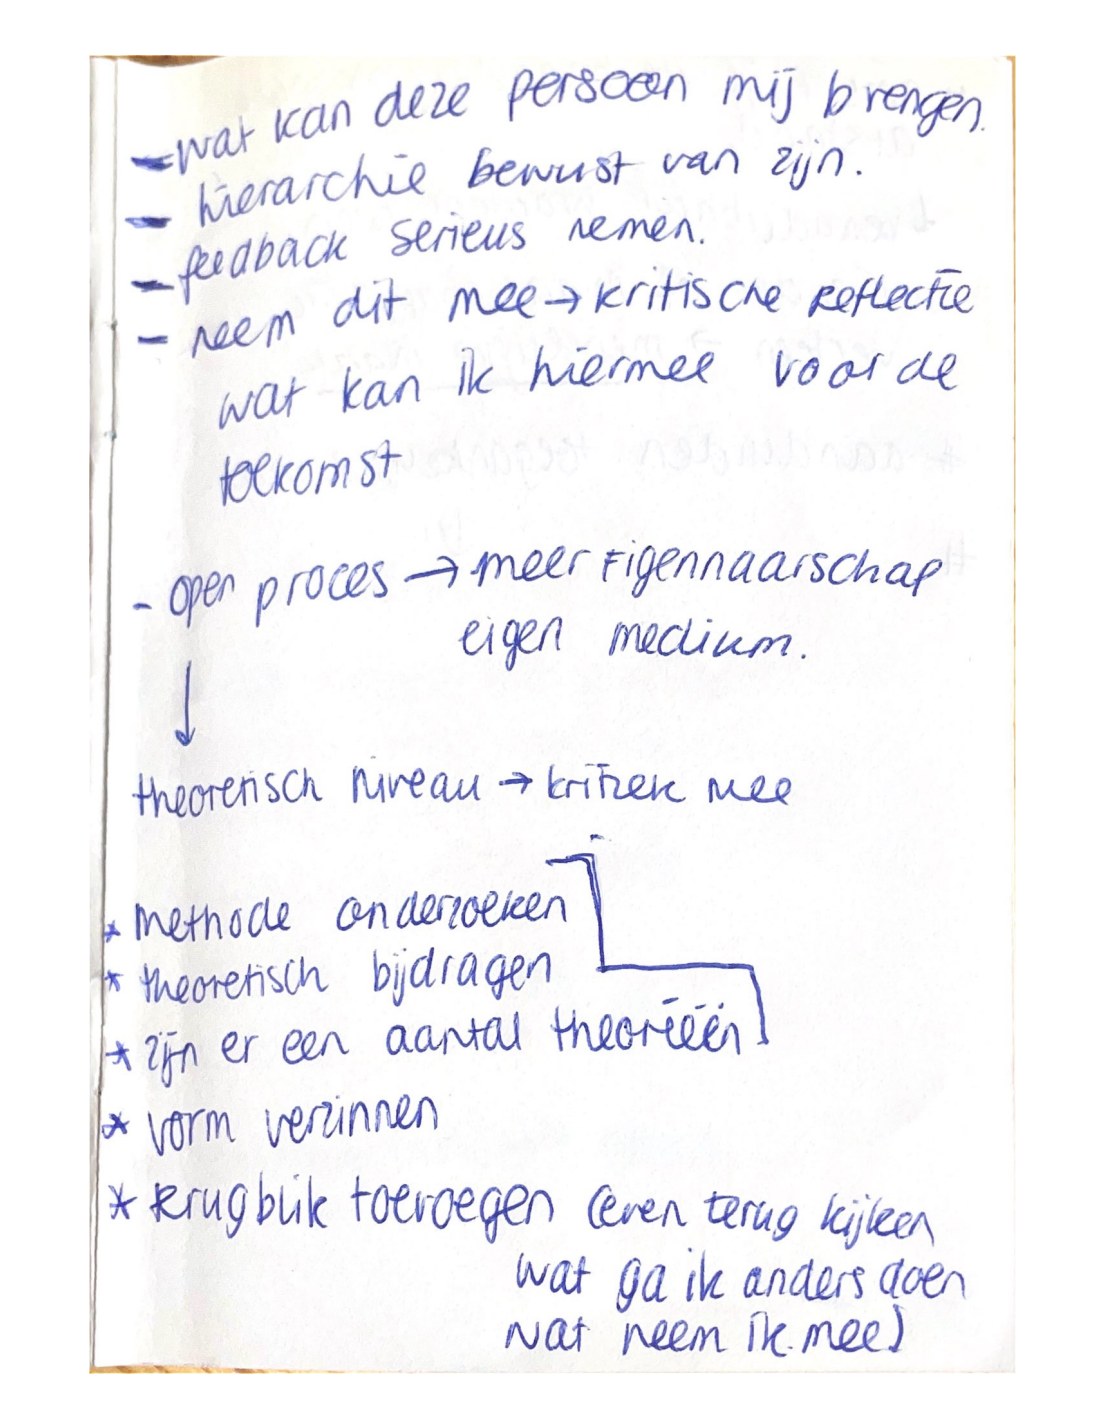 - wat kan deze persoon mij brengen.
- hierarchie bewust van zijn.
- feedback serieus nemen.
- neem dit mee → kritische Reflectie
wat kan ik hiermee voor de
toekomst
- open proces → meer Eigennaarschap
eigen medium.
↓
theoretisch niveau → kritiek mee
* methode onderzoeken
* theoretisch bijdragen
* zijn er een aantal theorieën
* vorm verzinnen
* terugblik toevoegen (even terug kijken
wat ga ik anders doen
wat neem ik mee)